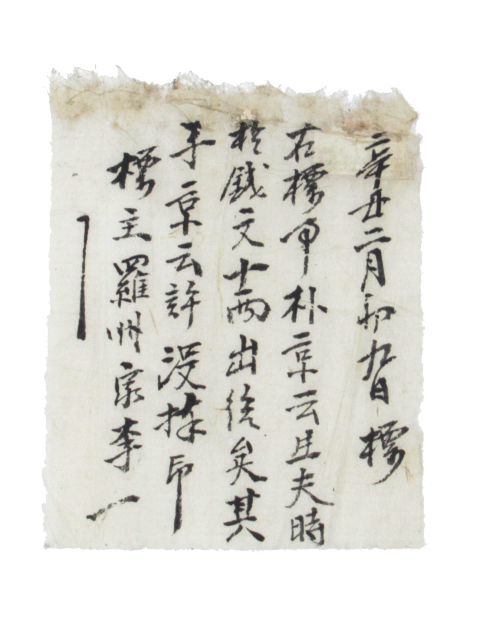 辛丑二月初九日標
右標事朴京云且夫時
錢文两出給矣其
手京云許没捧印
標主羅州宗李